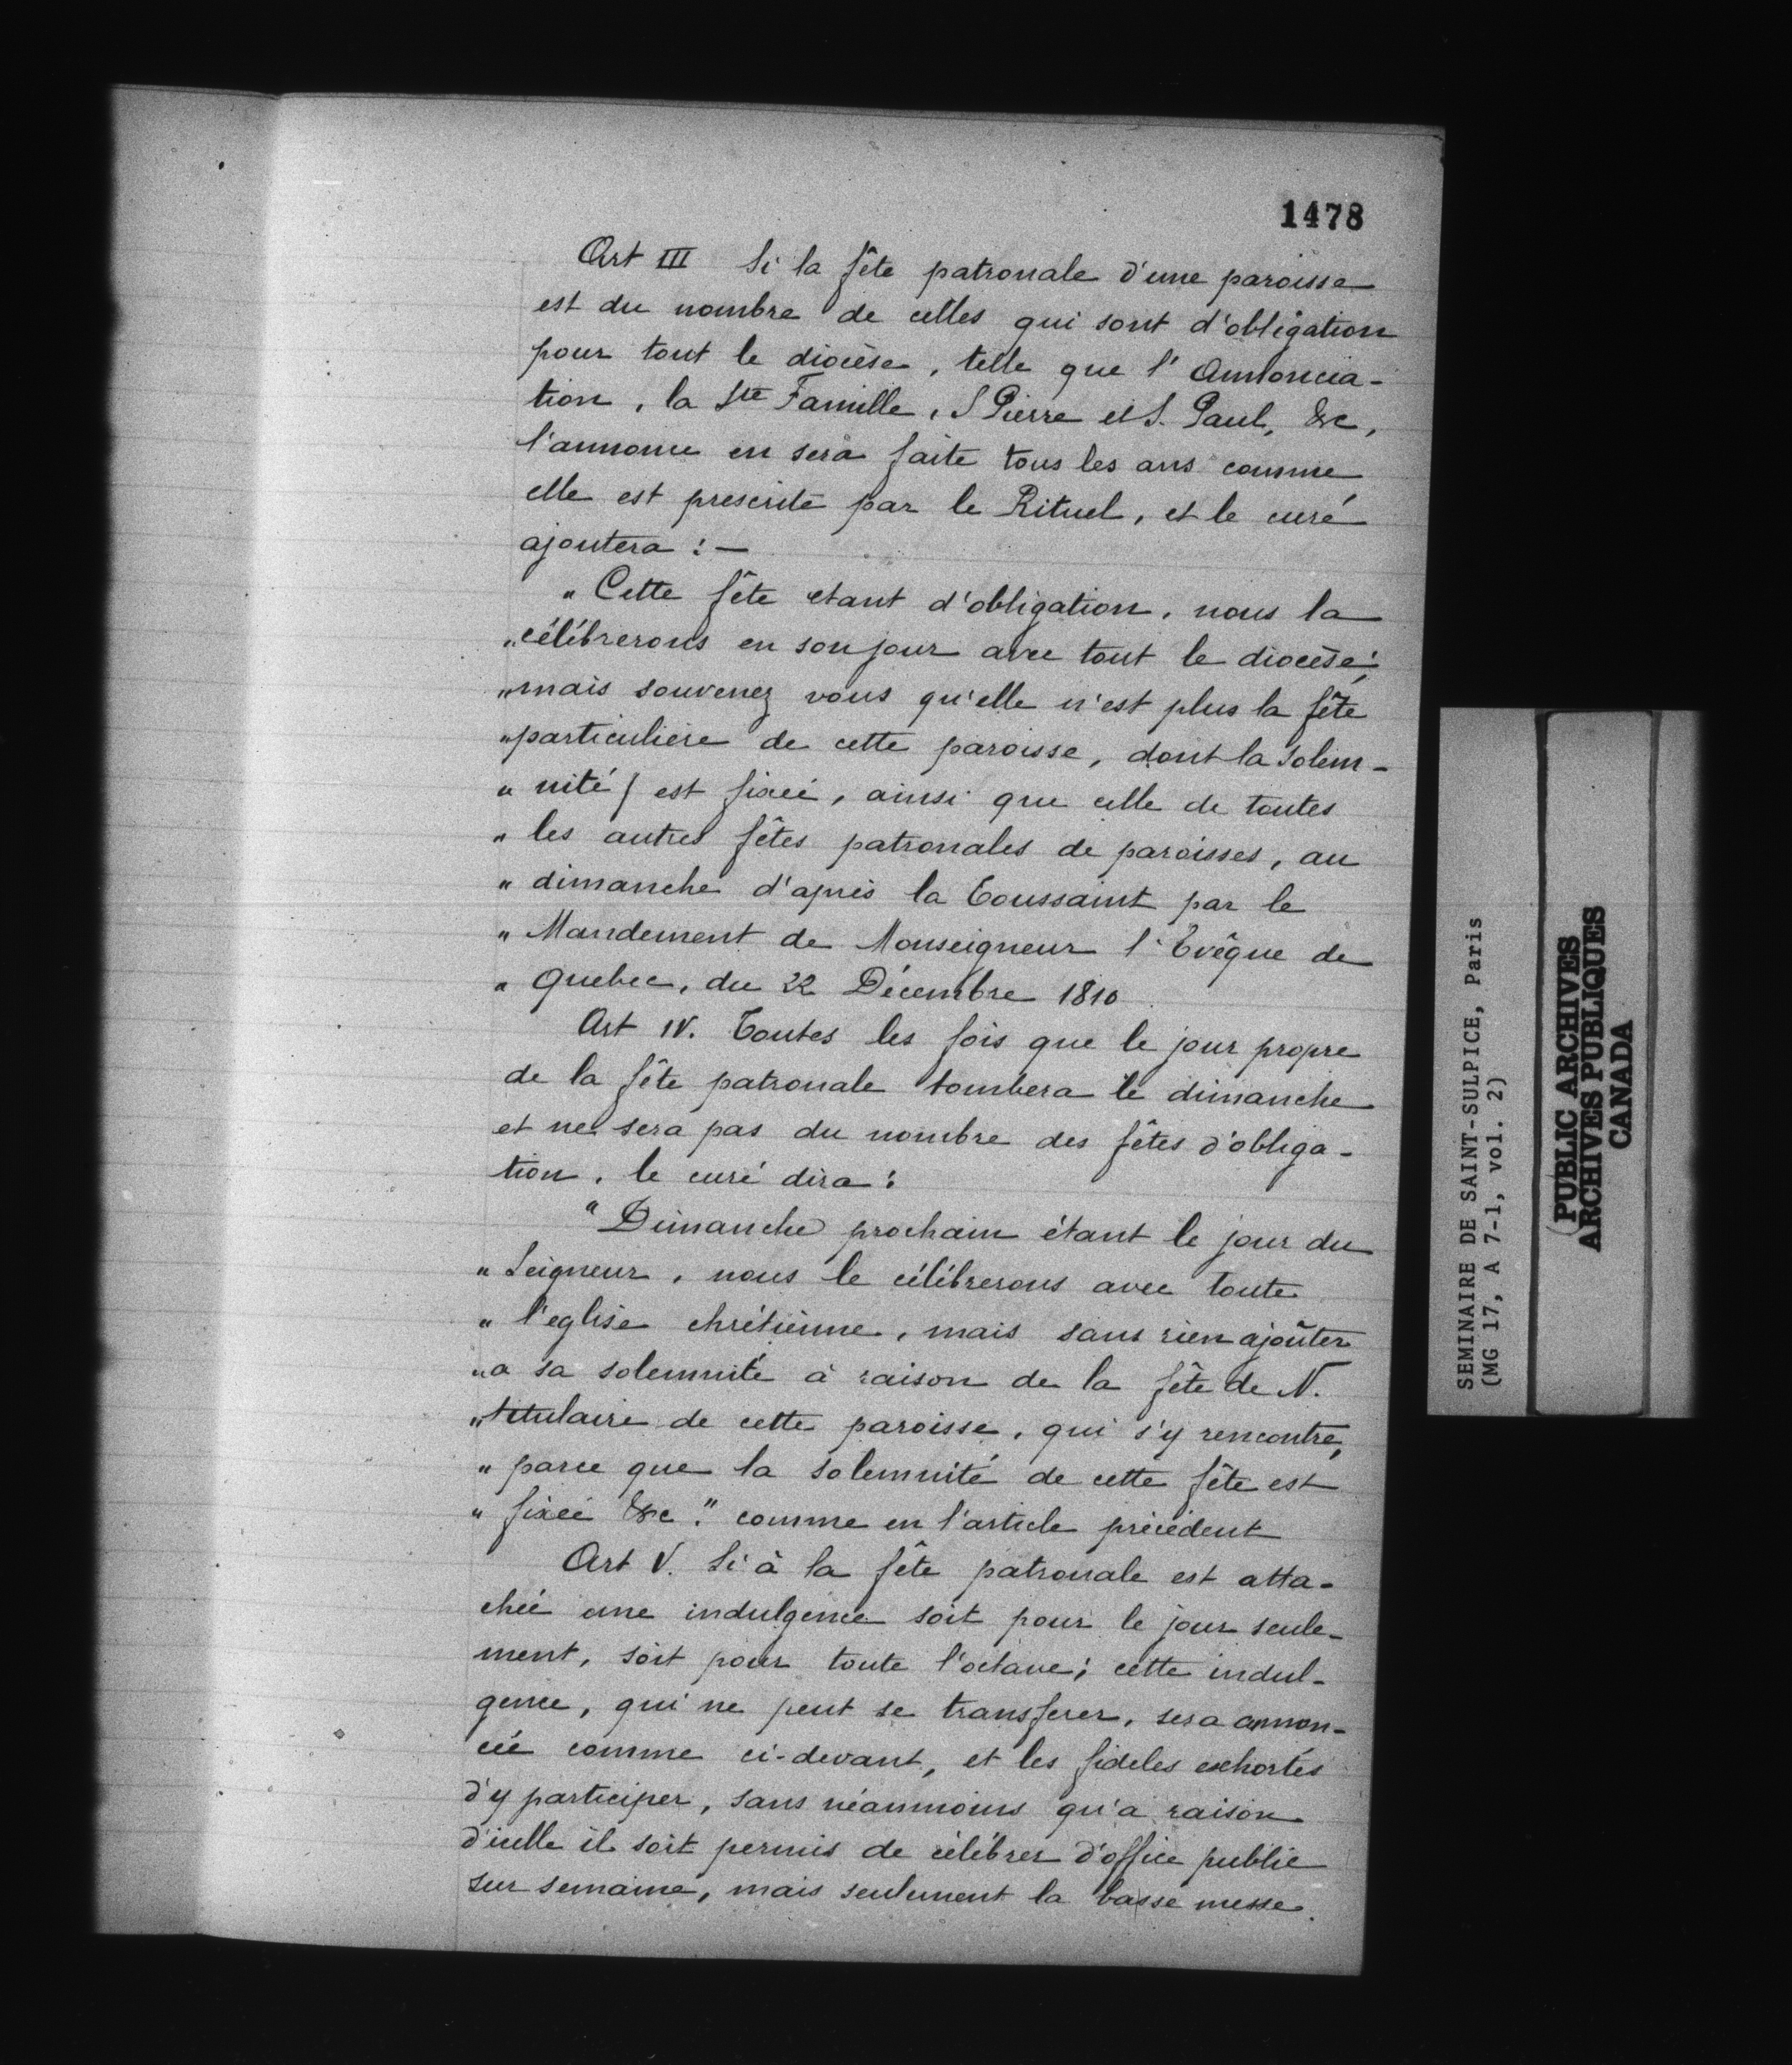 1478
Art III Si la fête patronale d'une paroisse
est du nombre de celles qui sont d'obligation
pour tout le diocèse, telle que l'Annoncia-
tion, la Ste Famille, S Pierre et S. Paul, &c,
l'annonce en sera faite tous les ans comme
elle est prescrite par le Rituel, et le curé
ajoutera : —
" Cette fête etant d'obligation, nous la
" célébrerons en son jour avec tout le diocèse;
" mais souvenez vous qu'elle n'est plus la fête
" particulière de cette paroisse, dont la solem-
" nité est fixée, ainsi que celle de toutes
" les autres fêtes patronales de paroisses, au
" dimanche d'après la Toussaint par le
" Mandement de Monseigneur l'Evêque de
" Quebec, du 22 Décembre 1810
Art IV. Toutes les fois que le jour propre
de la fête patronale tombera le dimanche
et ne sera pas du nombre des fêtes d'obliga-
tion, le curé dira :
" Dimanche prochain étant le jour du
" Seigneur, nous le célébrerons avec toute
" l'eglise chrétienne, mais sans rien ajoûter
" a sa solemnité à raison de la fête de N.
" titulaire de cette paroisse, qui s'y rencontre,
" parce que la solemnité de cette fête est
" fixée &c." comme en l'article précédent
Art V. Si à la fête patronale est atta-
chée une indulgence soit pour le jour seule-
ment, soit pour toute l'octave; cette indul-
gence, qui ne peut se transferer, sera annon-
cée comme ci-devant, et les fideles exhortés
d'y participer, sans néanmoins qu'a raison
d'icelle il soit permis de célébrer d'office public
sur semaine, mais seulement la basse messe.
SEMINAIRE DE SAINT-SULPICE, Paris
(MG 17, A 7-1, vol. 2)
PUBLIC ARCHIVES
ARCHIVES PUBLIQUES
CANADA